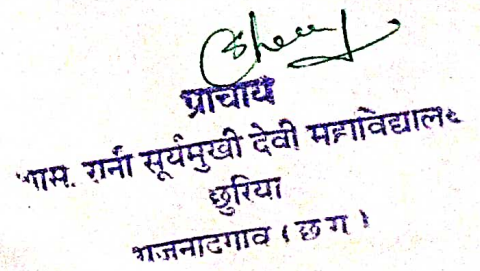 प्राचार्य
शास. रानी सूर्यमुखी देवी महाविद्यालय
छुरिया
राजनादगाव (छ ग)